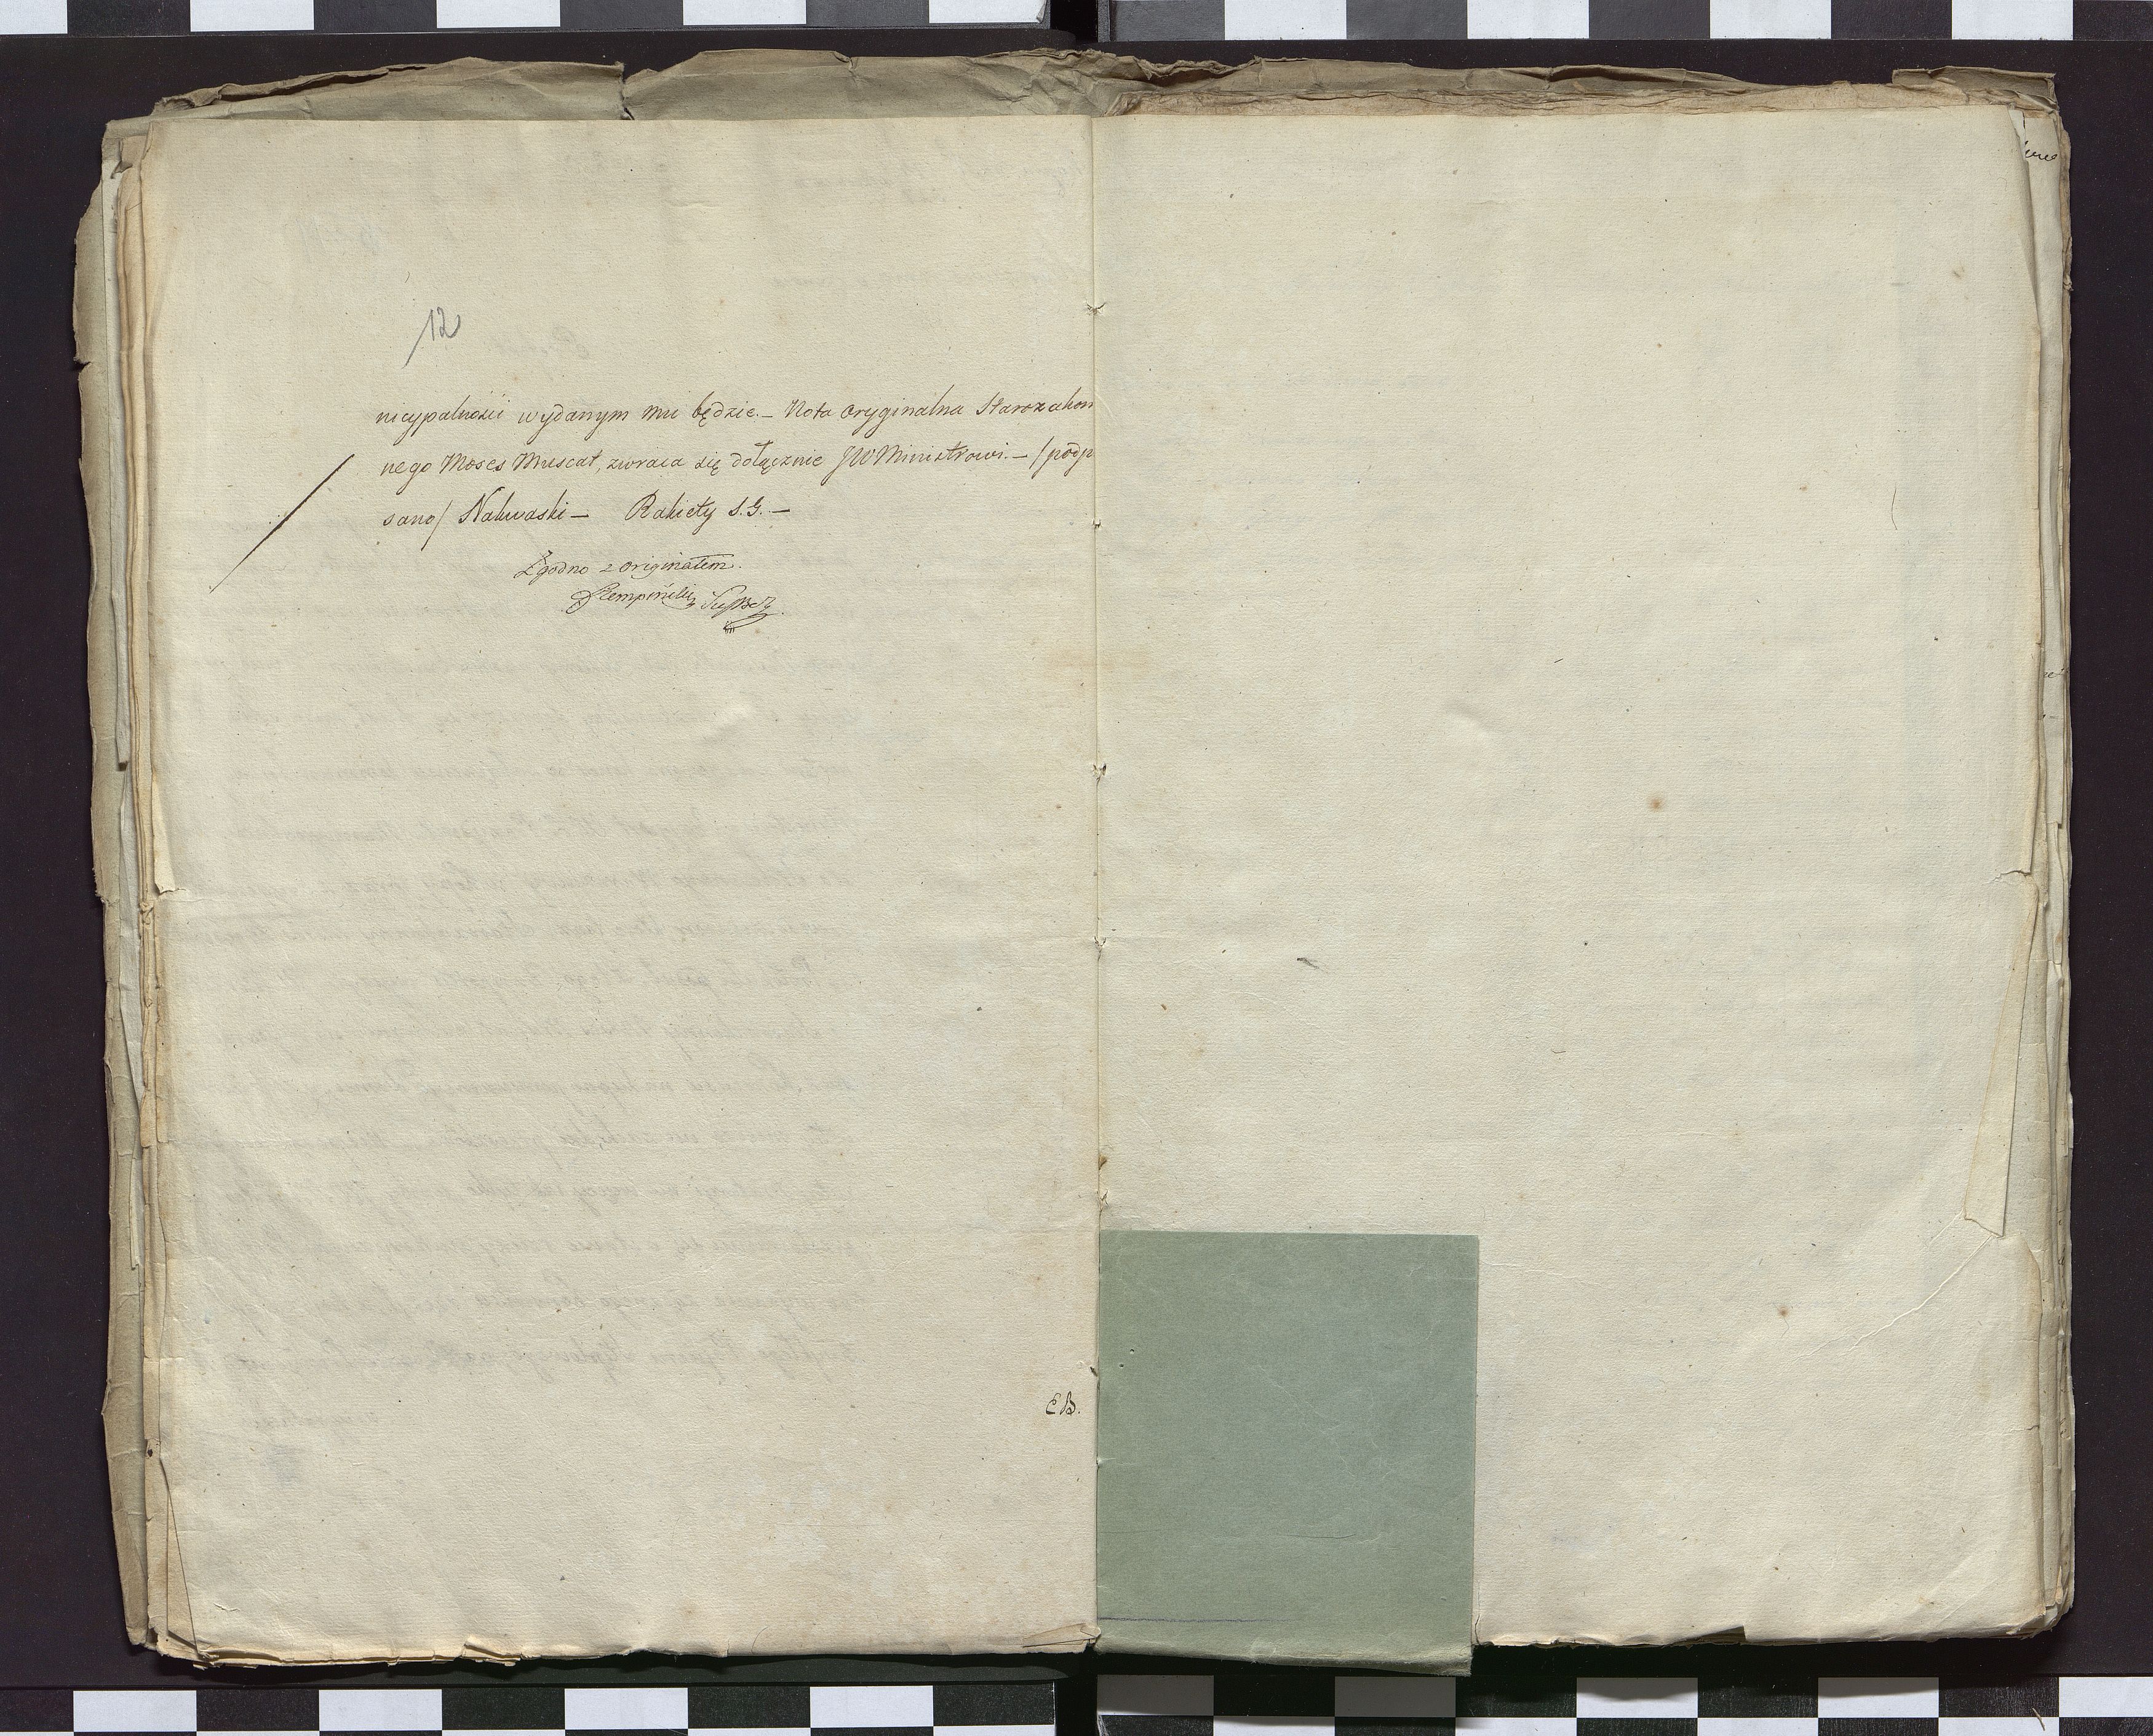 12
nicypalności wydanym mu będzie.— Nota oryginalna Starozakon
nego Moses Muscat, zwraca się dołącznie JW Ministrowi.— /podp
sano/ Nakwaski — Rakiety S.G.—
Zgodno z originałem.
EB.